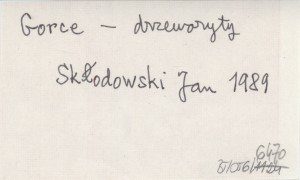 Gorce - drzeworyty
Skłodowski Jan 1989
6470